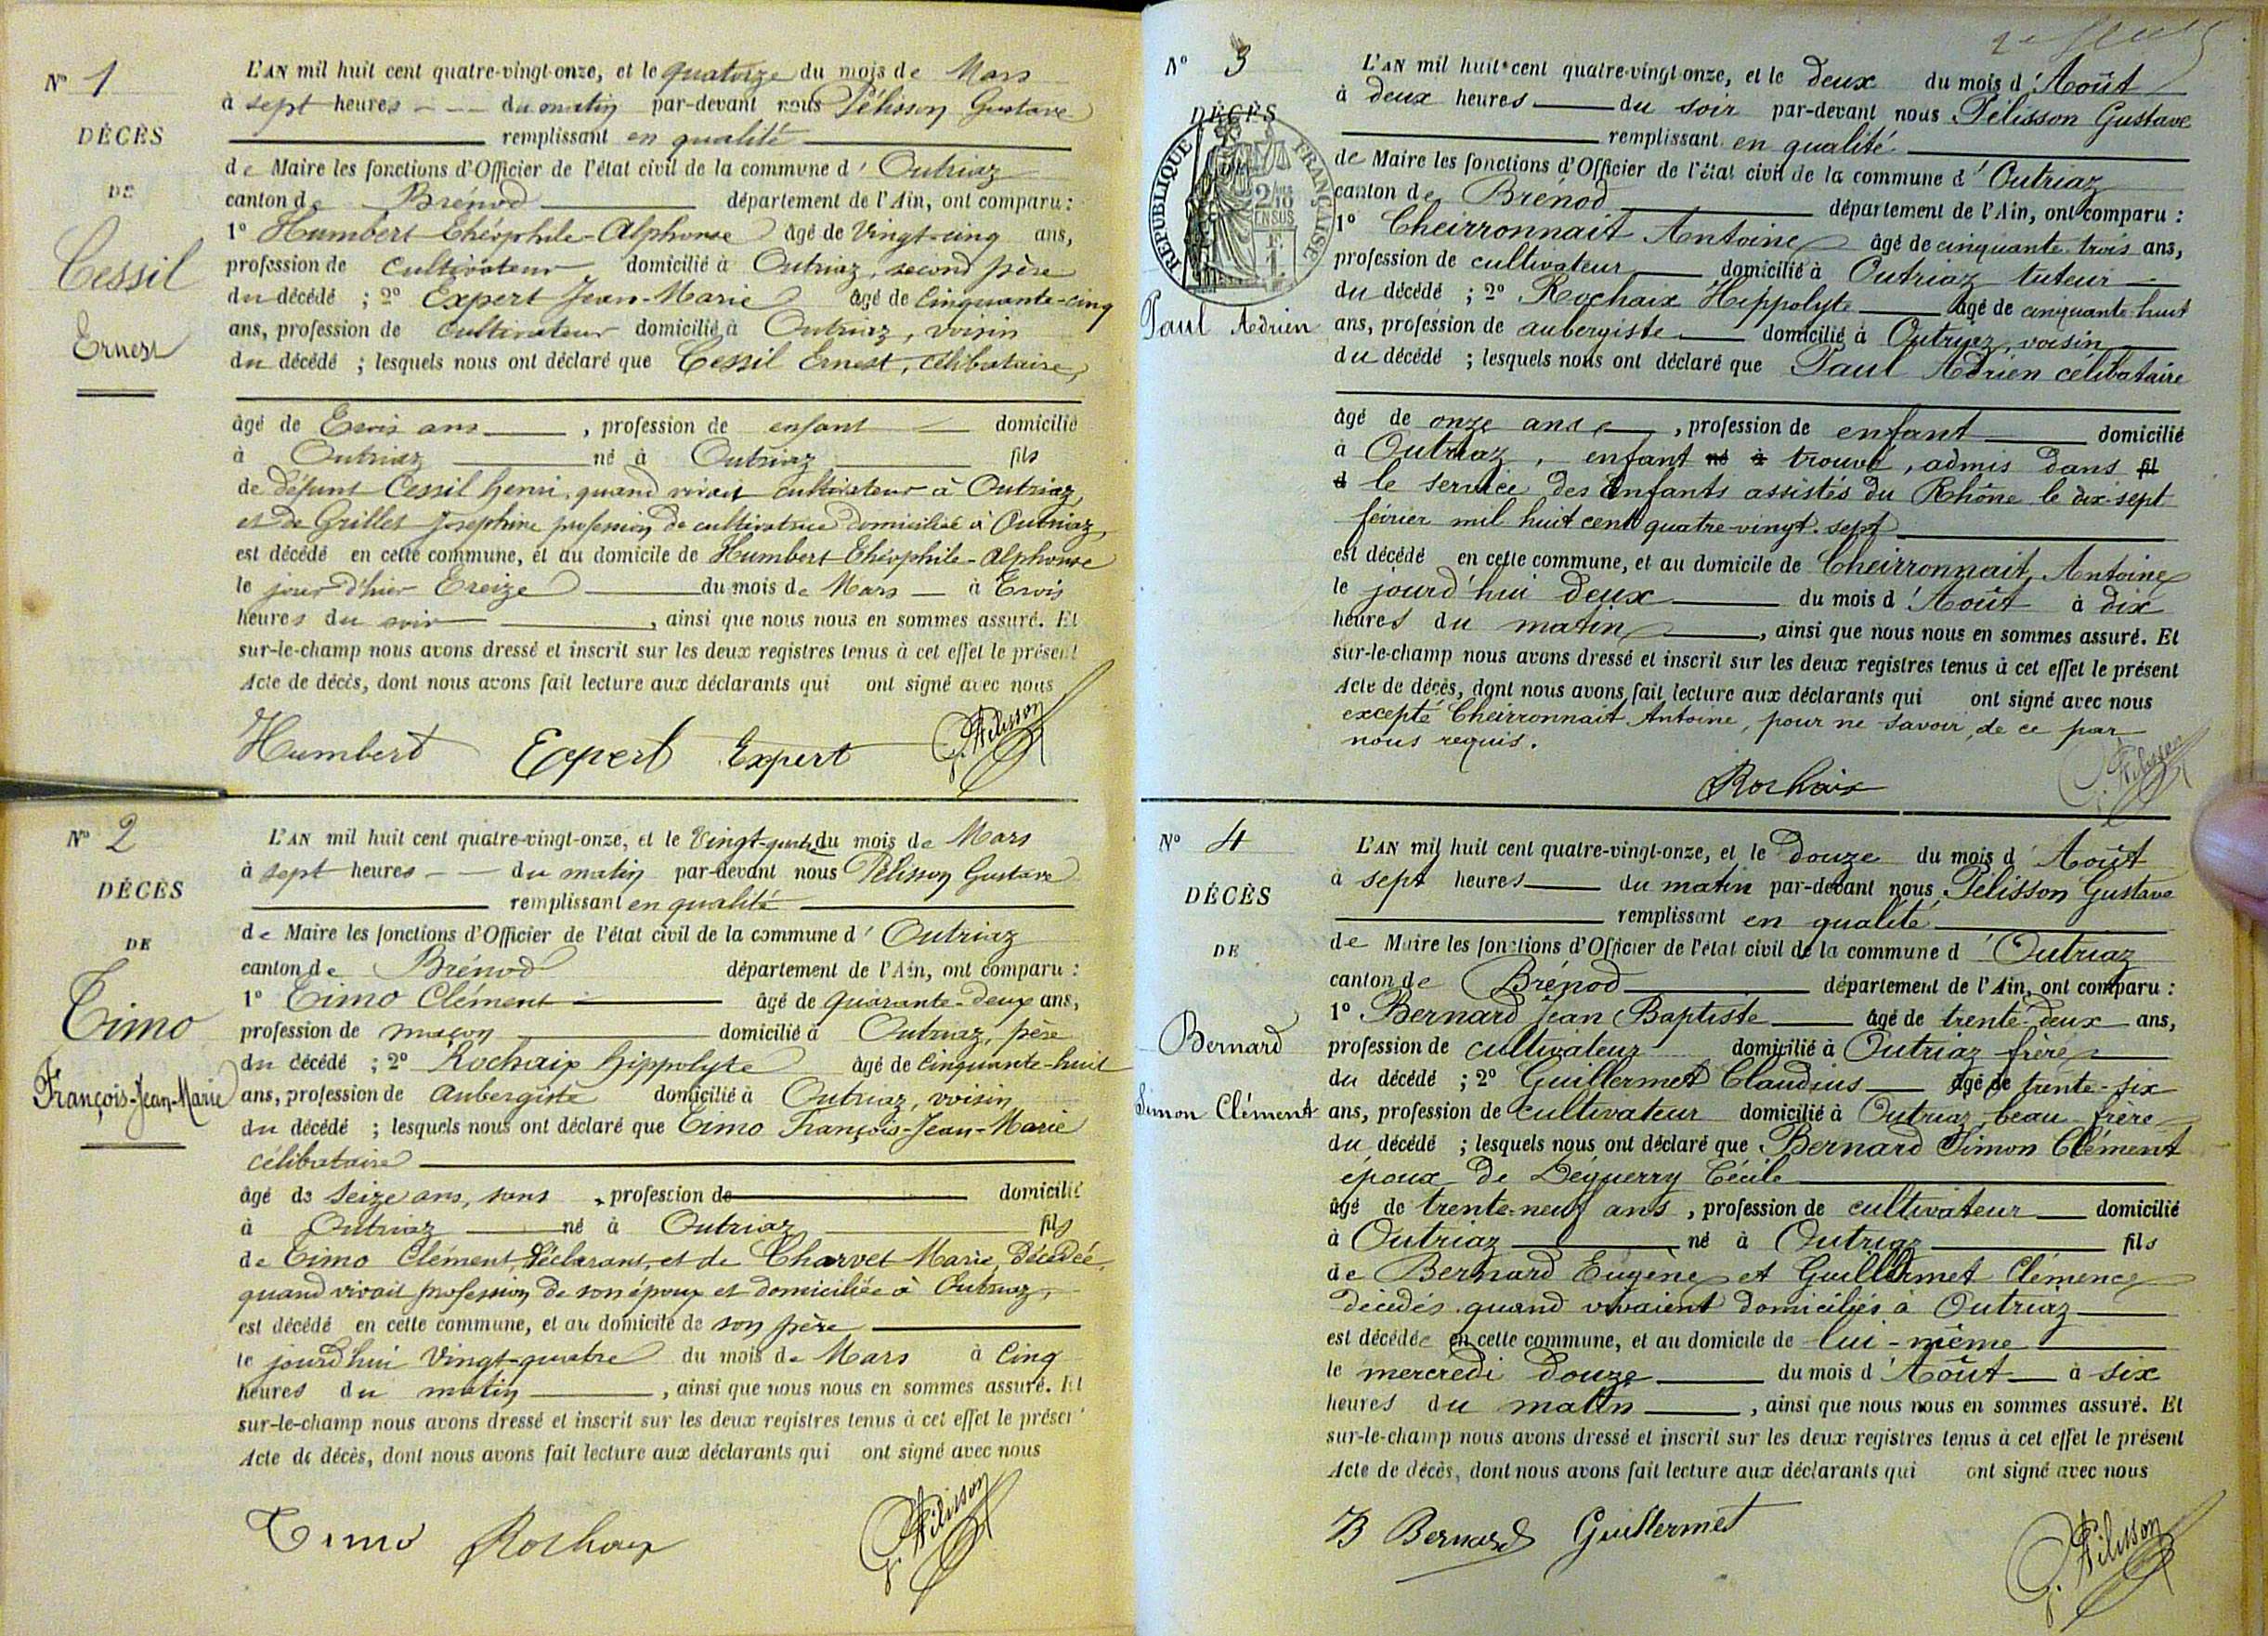 N° 1
DÉCÈS
DE
Cessil
Ernest
L'AN mil huit cent quatre-vingt-onze, et le quatorze du mois de Mars
à sept heures - - - du matin par-devant nous Pélisson Gustave
remplissant en qualité
de Maire les fonctions d'Officier de l'état civil de la commune d' Outriaz
canton de Brénod département de l'Ain, ont comparu :
1° Humbert Théophile-Alphonse âgé de Vingt-cinq ans,
profession de Cultivateur domicilié à Outriaz, second père
du décédé ; 2° Expert Jean-Marie âgé de Cinquante-cinq
ans, profession de cultivateur domicilié à Outriaz, voisin
du décédé ; lesquels nous ont déclaré que Cessil Ernest, célibataire,
âgé de Trois ans , profession de enfant domicilié
à Outriaz né à Outriaz fils
de défunt Cessil henri, quand vivait cultivateur à Outriaz,
et de Grillet Joséphine profession de cultivatrice domiciliée à Outriaz,
est décédé en cette commune, et au domicile de Humbert Théophile-Alphonse
le jour d'hier Treize du mois de Mars à Trois
heures du soir , ainsi que nous nous en sommes assuré. Et
sur-le-champ nous avons dressé et inscrit sur les deux registres tenus à cet effet le présent
Acte de décès, dont nous avons fait lecture aux déclarants qui ont signé avec nous
Humbert Expert Expert G. Pélisson
N° 2
DÉCÈS
DE
Timo
François-Jean-Marie
L'AN mil huit cent quatre-vingt-onze, et le Vingt-quatre du mois de Mars
à sept heures - - du matin par-devant nous Pélisson Gustave
remplissant en qualité
de Maire les fonctions d'Officier de l'état civil de la commune d' Outriaz
canton de Brénod département de l'Ain, ont comparu :
1° Timo Clément âgé de quarante-deux ans,
profession de maçon domicilié à Outriaz, père
du décédé ; 2° Rochaix hippolyte âgé de Cinquante-huit
ans, profession de Aubergiste domicilié à Outriaz, voisin
du décédé ; lesquels nous ont déclaré que Timo François-Jean-Marie
célibataire
âgé de Seize ans, sans , profession de domicilié
à Outriaz né à Outriaz fils
de Timo Clément, déclarant, et de Charvet Marie, Décédée,
quand vivait profession de son époux et domiciliée à Outriaz,
est décédé en cette commune, et au domicile de son père
le jourd'hui Vingt-quatre du mois de Mars à Cinq
heures du matin , ainsi que nous nous en sommes assuré. Et
sur-le-champ nous avons dressé et inscrit sur les deux registres tenus à cet effet le présent
Acte de décès, dont nous avons fait lecture aux déclarants qui ont signé avec nous
Timo Rochaix G. Pélisson
N° 3
DÉCÈS
RÉPUBLIQUE FRANÇAISE
2/10 EN SUS
Paul Adrien
L'AN mil huit cent quatre-vingt-onze, et le deux du mois d' Août
à deux heures du soir par-devant nous Pélisson Gustave
remplissant en qualité
de Maire les fonctions d'Officier de l'état civil de la commune d' Outriaz
canton de Brénod département de l'Ain, ont comparu :
1° Cheirronnait Antoine âgé de cinquante-trois ans,
profession de cultivateur domicilié à Outriaz tuteur
du décédé ; 2° Rochaix Hippolyte âgé de cinquante-huit
ans, profession de aubergiste domicilié à Outriaz, voisin
du décédé ; lesquels nous ont déclaré que Paul Adrien célibataire
âgé de onze ans , profession de enfant domicilié
à Outriaz, enfant né à trouvé, admis dans fil
d le service des Enfants assistés du Rhône le dix-sept
février mil huit cent quatre-vingt-sept
est décédé en cette commune, et au domicile de Cheirronnait Antoine
le jourd'hui deux du mois d' Août à dix
heures du matin , ainsi que nous nous en sommes assuré. Et
sur-le-champ nous avons dressé et inscrit sur les deux registres tenus à cet effet le présent
Acte de décès, dont nous avons fait lecture aux déclarants qui ont signé avec nous
excepté Cheirronnait Antoine, pour ne savoir, de ce par
nous requis.
Rochaix G. Pélisson
N° 4
DÉCÈS
DE
Bernard
Simon Clément
L'AN mil huit cent quatre-vingt-onze, et le douze du mois d' Août
à sept heures du matin par-devant nous Pélisson Gustave
remplissant en qualité
de Maire les fonctions d'Officier de l'état civil de la commune d' Outriaz
canton de Brénod département de l'Ain, ont comparu :
1° Bernard Jean Baptiste âgé de trente-deux ans,
profession de cultivateur domicilié à Outriaz frère
du décédé ; 2° Guillermet Claudius âgé de trente-six
ans, profession de cultivateur domicilié à Outriaz beau-frère
du décédé ; lesquels nous ont déclaré que Bernard Simon Clément
époux de Déguerry Cécile
âgé de trente-neuf ans , profession de cultivateur domicilié
à Outriaz né à Outriaz fils
de Bernard Eugène et Guillermet Clémence
décédés quand vivaient domiciliés à Outriaz
est décédée en cette commune, et au domicile de lui-même
le mercredi douze du mois d' Août à six
heures du matin , ainsi que nous nous en sommes assuré. Et
sur-le-champ nous avons dressé et inscrit sur les deux registres tenus à cet effet le présent
Acte de décès, dont nous avons fait lecture aux déclarants qui ont signé avec nous
B Bernard Guillermet G. Pélisson